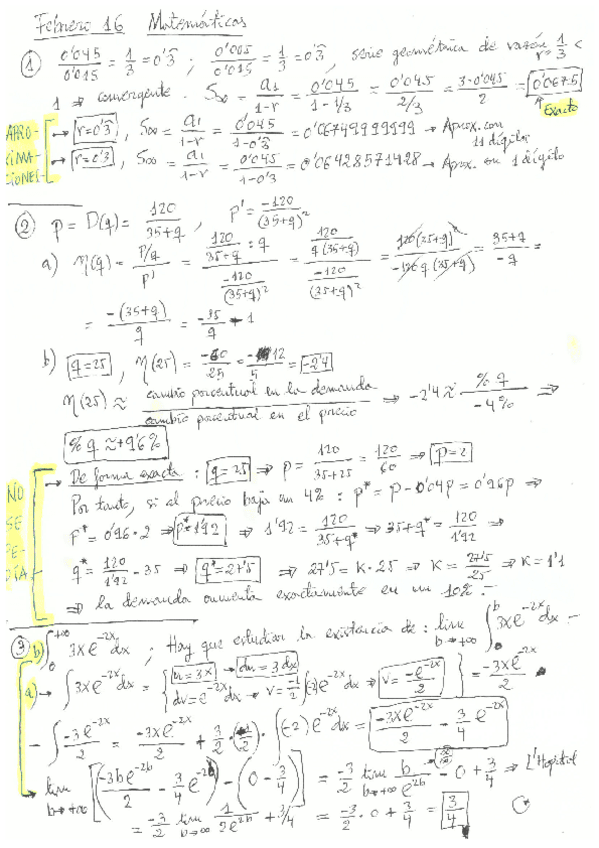 Febrero 16 Matemáticas
① 0'045/0'015 = 1/3 = 0'3̂ ; 0'005/0'015 = 1/3 = 0'3̂ , serie geométrica de razón r = 1/3 <
1 ⇒ convergente. S∞ = a1/(1-r) = 0'045/(1-1/3) = 0'045/(2/3) = 3·0'045/2 = 0'0675
Exacto
APRO-
XIMA-
CIONES
→ r=0'3̂ , S∞ = a1/(1-r) = 0'045/(1-0'3̂) = 0'06749999999 → Aprox. con 11 dígitos
→ r=0'3 , S∞ = a1/(1-r) = 0'045/(1-0'3) = 0'06428571428 → Aprox. con 1 dígito
② p = D(q) = 120/(35+q) , p' = -120/(35+q)²
a) η(q) = (p/q)/p' = (120/(35+q) : q)/(-120/(35+q)²) = (120/(q(35+q)))/(-120/(35+q)²) = 120(35+q)²/(-120q(35+q)) = (35+q)/(-q) =
= -(35+q)/q = -35/q - 1
b) q=25 , η(25) = -60/25 = -12/5 = -2'4
η(25) ≈ cambio porcentual en la demanda/cambio porcentual en el precio ⇒ -2'4 ≈ % q/-4% ⇒
% q ≈ +9'6%
NO
SE
PE-
DÍA
→ De forma exacta : q=25 ⇒ p = 120/(35+25) = 120/60 ⇒ p=2
Por tanto, si el precio baja un 4% : p* = p - 0'04p = 0'96p ⇒
p* = 0'96·2 ⇒ p*=1'92 ⇒ 1'92 = 120/(35+q*) ⇒ 35+q* = 120/1'92 ⇒
q* = 120/1'92 - 35 ⇒ q*=27'5 ⇒ 27'5 = K·25 ⇒ K = 27'5/25 ⇒ K=1'1
⇒ la demanda aumenta exactamente en un 10%.-
③ b) ∫₀^{+∞} 3xe^{-2x}dx ; Hay que estudiar la existencia de : lim b→+∞ ∫₀^b 3xe^{-2x}dx .-
a) → ∫3xe^{-2x}dx = { u=3x → du=3dx
dv=e^{-2x}dx → v=-1/2 ∫(-2)e^{-2x}dx ⇒ v=-e^{-2x}/2 } = -3xe^{-2x}/2 -
- ∫ -3e^{-2x}/2 = -3xe^{-2x}/2 + 3/2·(-1/2)·∫(-2)e^{-2x}dx = -3xe^{-2x}/2 - 3/4 e^{-2x}
lim b→+∞ [(-3be^{-2b}/2 - 3/4 e^{-2b}) - (0 - 3/4)] = -3/2 lim b→+∞ b/e^{2b} - 0 + 3/4 ⇒ L'Hopital
= -3/2 lim b→∞ 1/2e^{2b} + 3/4 = -3/2·0 + 3/4 = 3/4